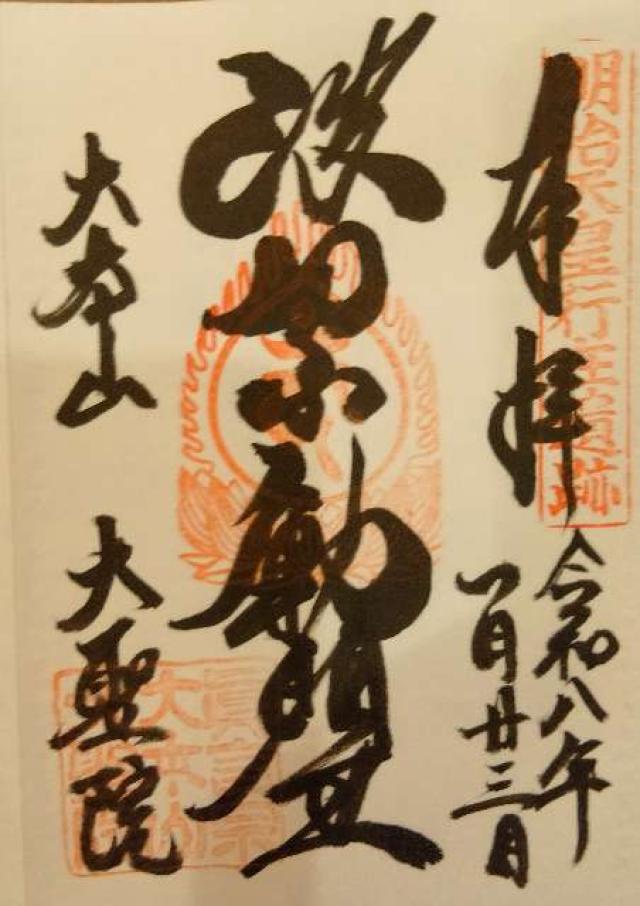 明治天皇行在遺跡
奉拝
令和八年
一月廿三日
波切不動明王
大本山 大聖院
眞言宗
大本山